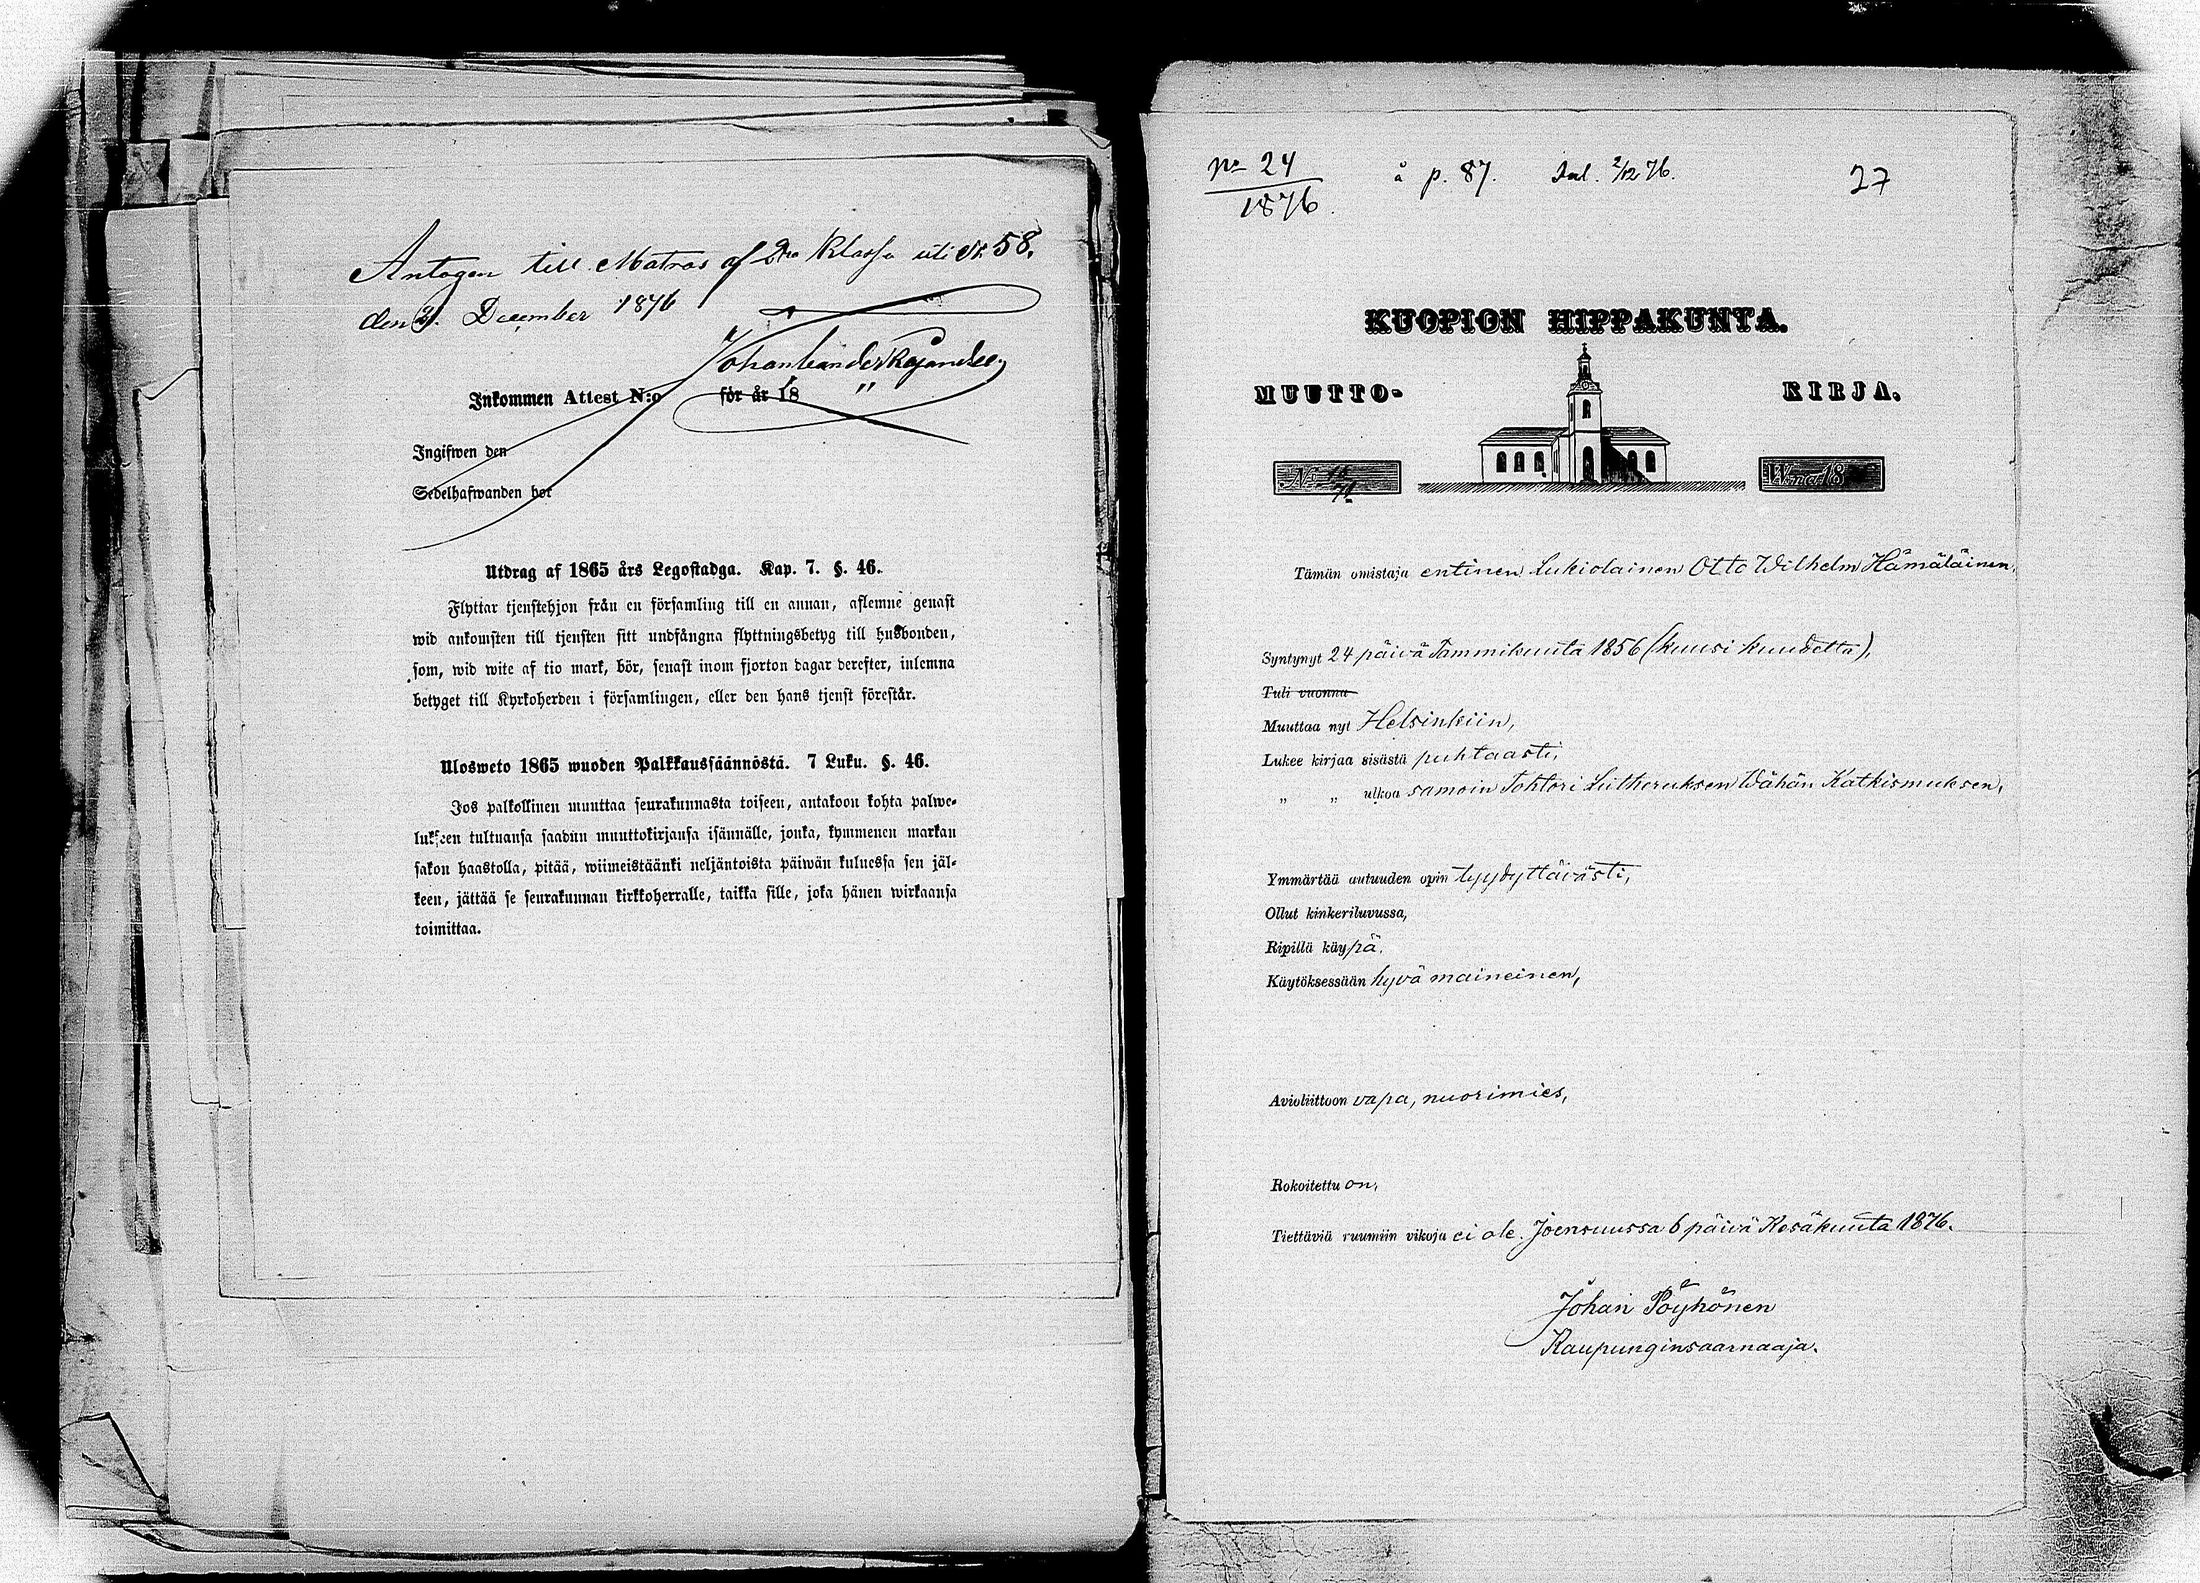 Antagen till Matros af 2dra Klass uti No 58.
den 2. December 1876
Inkommen Attest N:o för år 18 "
Ingifwen den
Sedelhafwanden bor
Utdrag af 1865 års Legostadga. Kap. 7. §. 46.
Flyttar tjenstehjon från en församling till en annan, aflemne genast
wid ankomsten till tjensten sitt undfångna flyttningsbetyg till husbonden,
som, wid wite af tio mark, bör, senast inom fjorton dagar derefter, inlemna
betyget till Kyrkoherden i församlingen, eller den hans tjenst förestår.
Ulosweto 1865 wuoden Palkkaussäännöstä. 7 Luku. §. 46.
Jos palkollinen muuttaa seurakunnasta toiseen, antakoon kohta palwe-
lukseen tultuansa saadun muuttokirjansa isännälle, jonka, kymmenen markan
sakon haastolla, pitää, wiimeistäänki neljäntoista päiwän kuluessa sen jäl-
keen, jättää se seurakunnan kirkkoherralle, taikka sille, joka hänen wirkaansa
toimittaa.
No 24 å p. 87. Inl. 2/12 76. 27
1876.
KUOPION HIPPAKUNTA.
MUUTTO- KIRJA.
N:o W:na 18
Tämän omistaja entinen Lukiolainen Otto Wilhelm Hämäläinen,
Syntynyt 24 päivä Tammikuuta 1856 (kuusi kuudetta),
Tuli vuonna
Muuttaa nyt Helsinkiin,
Lukee kirjaa sisästä puhtaasti,
" " ulkoa samoin Tohtori Lutheruksen Wähän Katkismuksen,
Ymmärtää autuuden opin tyydyttävästi,
Ollut kinkeriluvussa,
Ripillä käypä,
Käytöksessään hyvä maineinen,
Avioliittoon vapa, nuorimies,
Rokoitettu on,
Tiettäviä ruumiin vikoja ei ole. Joensuussa 6 päivä Kesäkuuta 1876.
Johan Pöyhönen
Kaupunginsaarnaaja.